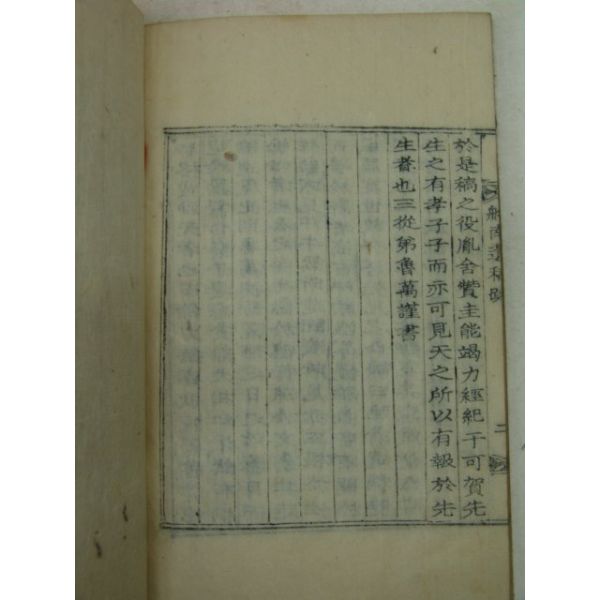 於是稿之役胤舍贊主能竭力經紀于可賀先
生之有孝子子而亦可見天之所以有報於先
生者也三從弟魯萬謹書
遺稿跋
二